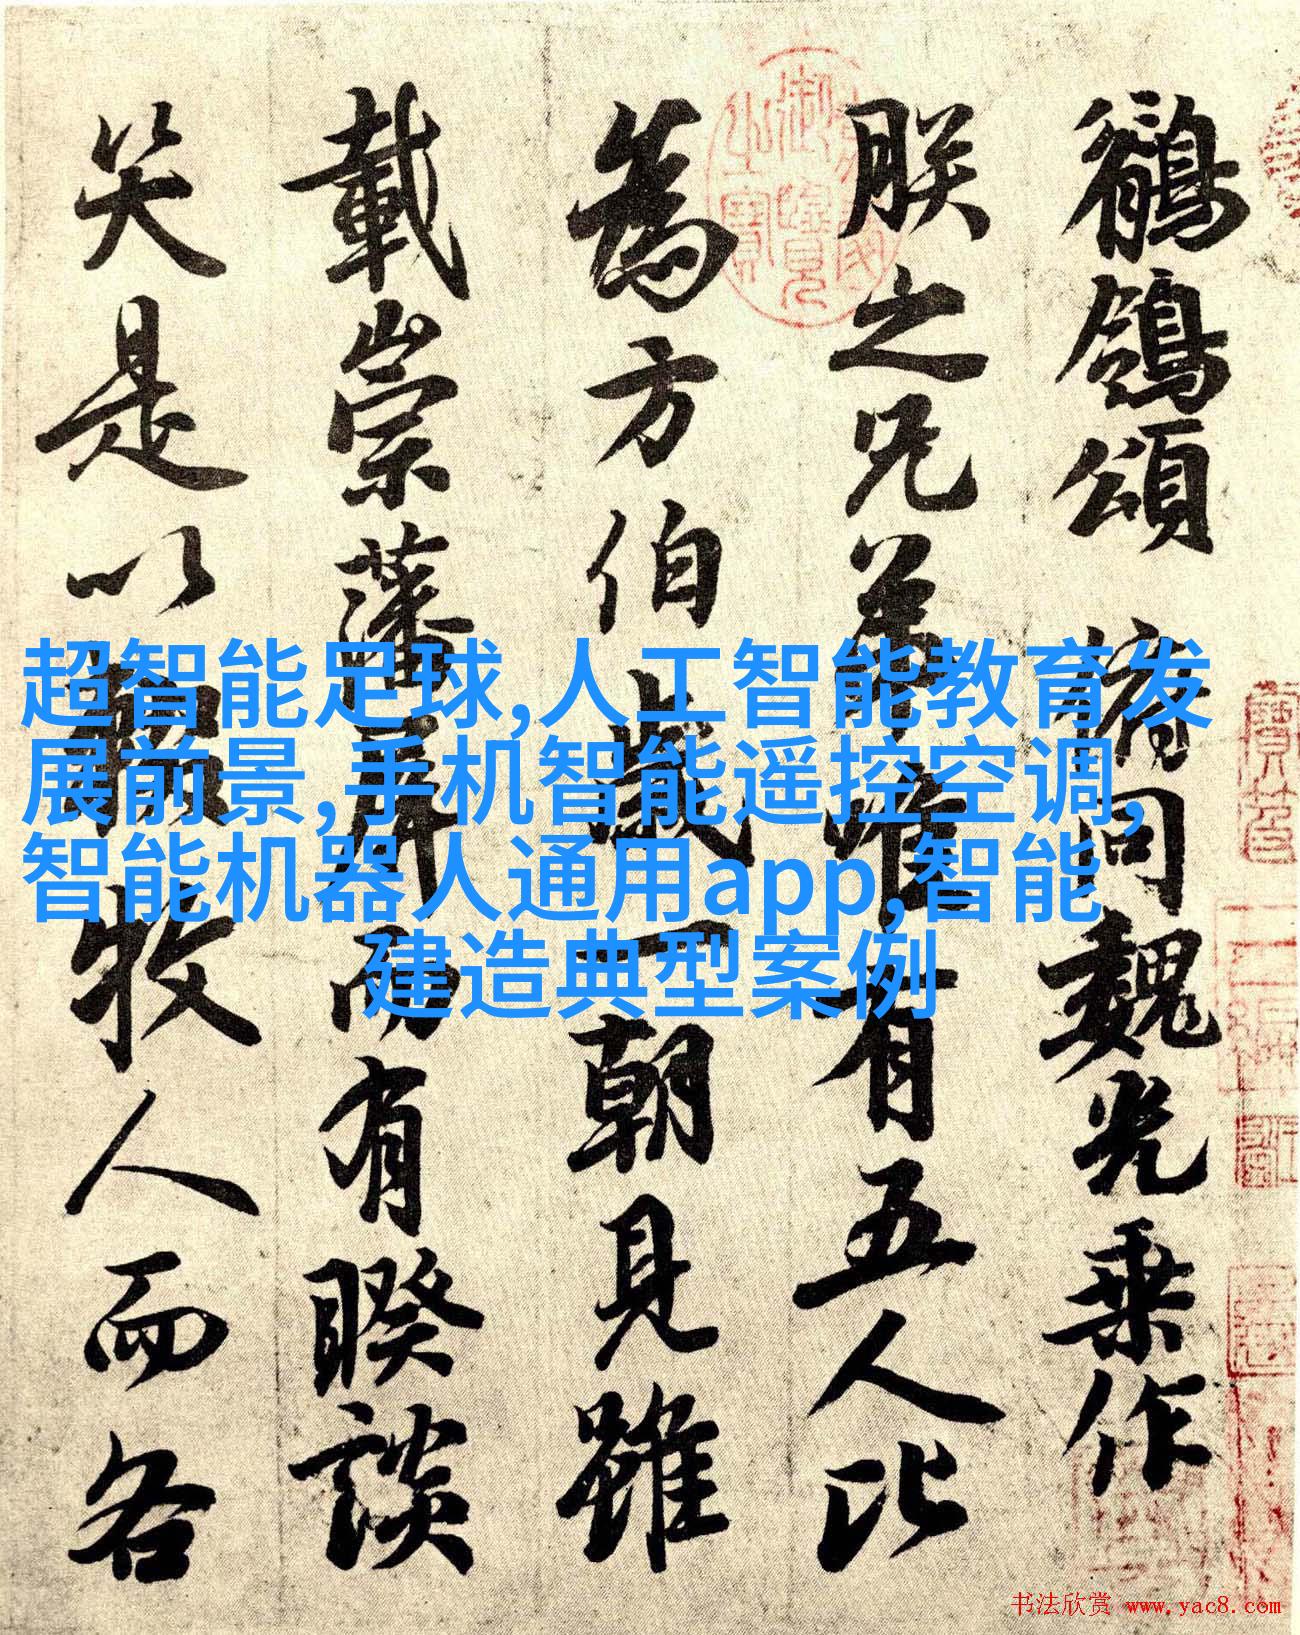 鶺鴒頌 俯同魏光乘作
朕之兄弟唯有五人比
為方伯歲一朝見雖
載崇藩屏而有睽談
笑是以輟牧人而各
超智能足球,人工智能教育发
展前景,手机智能遥控空调,
智能机器人通用app,智能
建造典型案例
书法欣赏 www.yac8.com